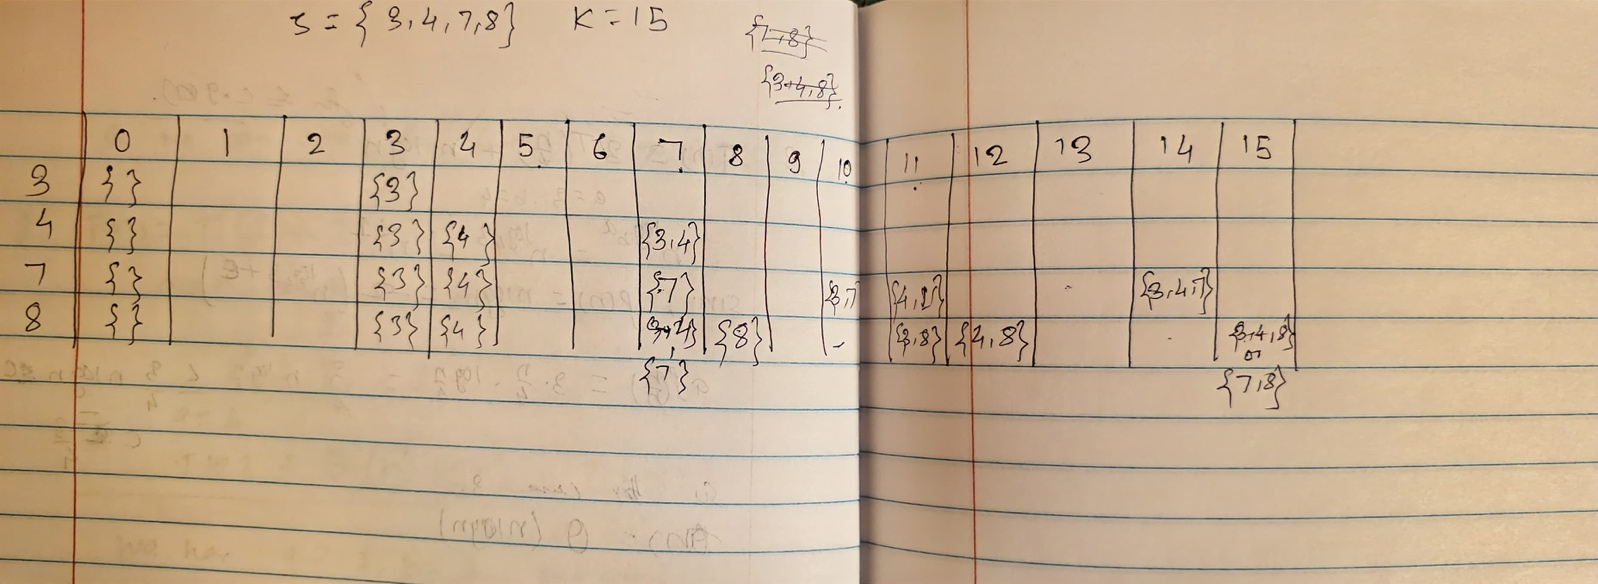 S = { 3, 4, 7, 8 } K = 15
{7,8}
{3,4,8}
0 1 2 3 4 5 6 7 8 9 10 11 12 13 14 15
3 { } {3}
4 { } {3} {4} {3,4}
7 { } {3} {4} {7} {4,7} {3,4,7}
8 { } {3} {4} {3,4} {8} {3,8} {4,8} {3,4,8}
or
{7} {7,8}